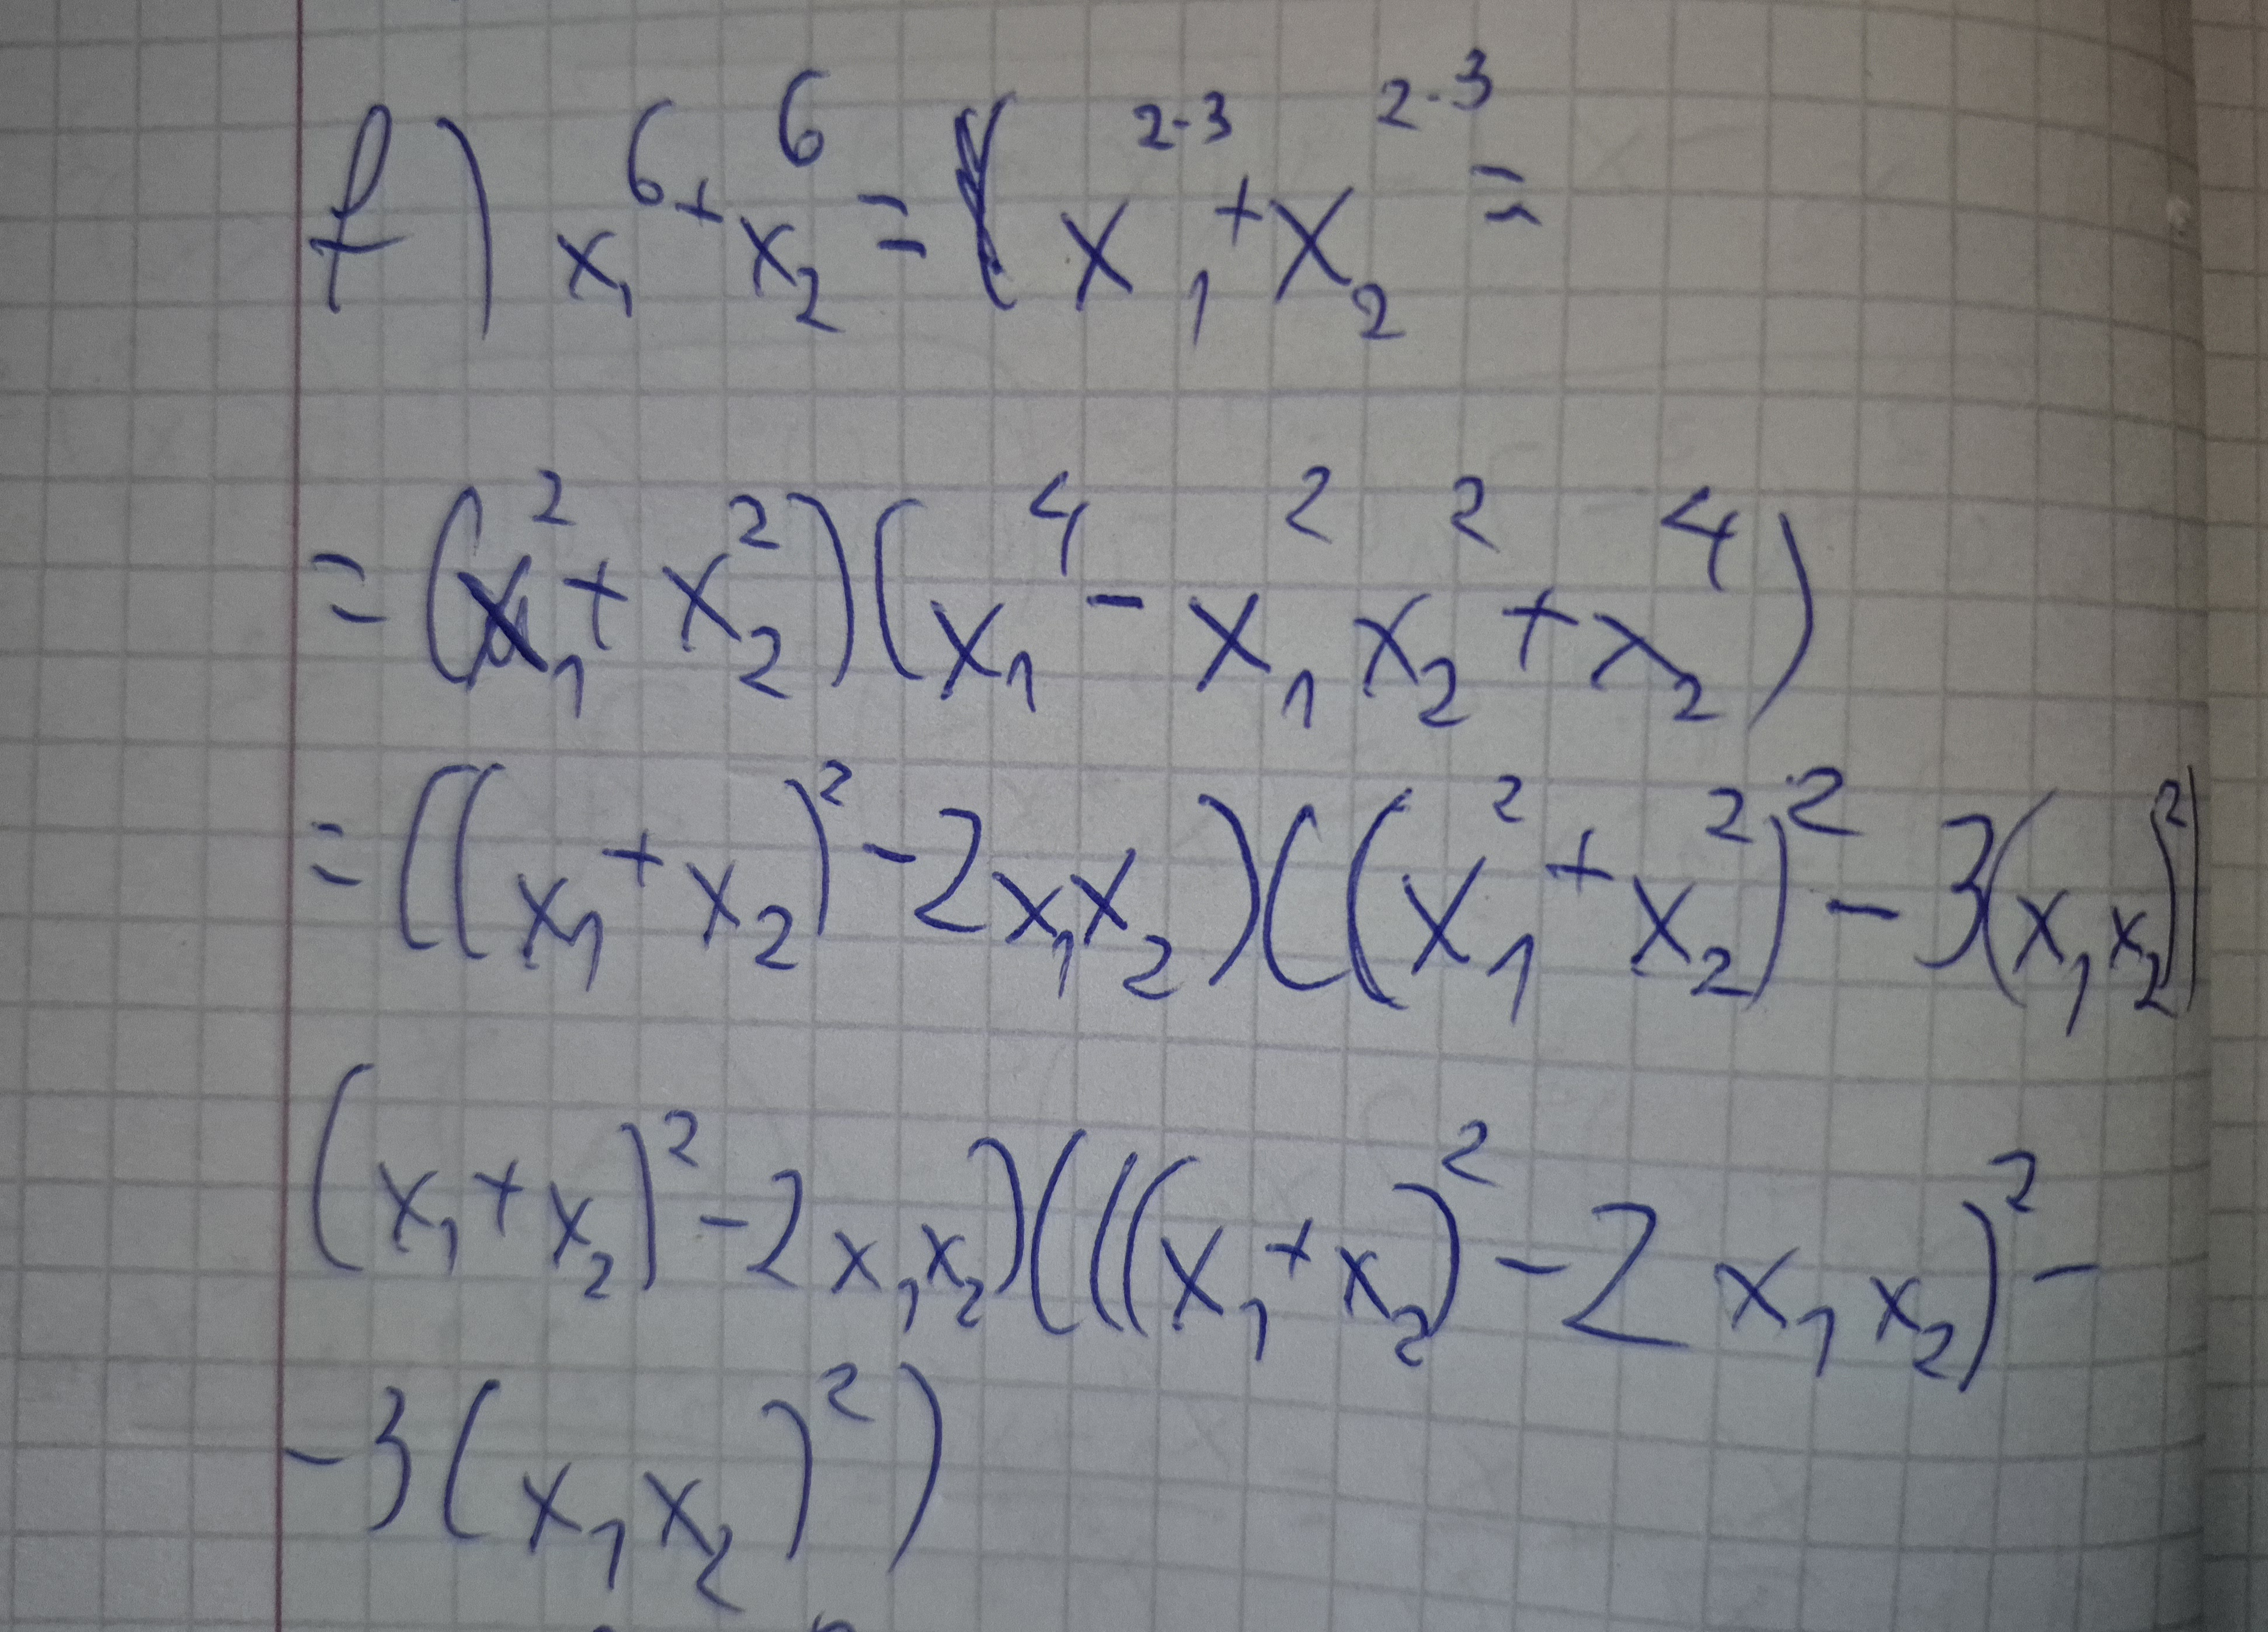 f) x₁⁶ + x₂⁶ = ( x₁²·³ + x₂²·³ =
= (x₁² + x₂²)(x₁⁴ - x₁²x₂² + x₂⁴)
= ((x₁ + x₂)² - 2x₁x₂)((x₁² + x₂²)² - 3(x₁x₂)²)
(x₁ + x₂)² - 2x₁x₂)(((x₁ + x₂)² - 2x₁x₂)² -
- 3(x₁x₂)²)